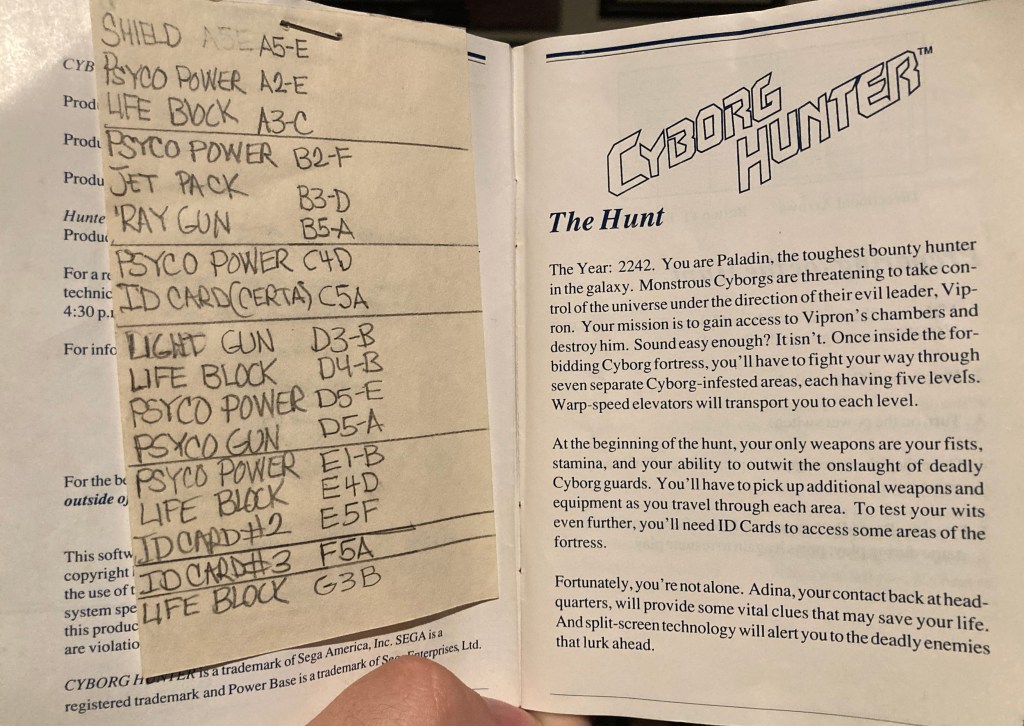 SHIELD A5E A5-E
PSYCO POWER A2-E
LIFE BLOCK A3-C
PSYCO POWER B2-F
JET PACK B3-D
'RAY GUN B5-A
PSYCO POWER C4D
ID CARD(CERTA) C5A
LIGHT GUN D3-B
LIFE BLOCK D4-B
PSYCO POWER D5-E
PSYCO GUN D5-A
PSYCO POWER E1-B
LIFE BLOCK E4D
ID CARD#2 E5F
ID CARD#3 F5A
LIFE BLOCK G3B
CYB
Prod
Produ
Produ
Hunte
Produc
For a re
technic
4:30 p.
For info
For the be
outside o
This softw
copyright
the use of t
system spe
this produc
are violatio
CYBORG HUNTER is a trademark of Sega America, Inc. SEGA is a
registered trademark and Power Base is a trademark of Sega Enterprises, Ltd.
CYBORG
HUNTER™
The Hunt
The Year: 2242. You are Paladin, the toughest bounty hunter
in the galaxy. Monstrous Cyborgs are threatening to take con-
trol of the universe under the direction of their evil leader, Vip-
ron. Your mission is to gain access to Vipron's chambers and
destroy him. Sound easy enough? It isn't. Once inside the for-
bidding Cyborg fortress, you'll have to fight your way through
seven separate Cyborg-infested areas, each having five levels.
Warp-speed elevators will transport you to each level.
At the beginning of the hunt, your only weapons are your fists,
stamina, and your ability to outwit the onslaught of deadly
Cyborg guards. You'll have to pick up additional weapons and
equipment as you travel through each area. To test your wits
even further, you'll need ID Cards to access some areas of the
fortress.
Fortunately, you're not alone. Adina, your contact back at head-
quarters, will provide some vital clues that may save your life.
And split-screen technology will alert you to the deadly enemies
that lurk ahead.